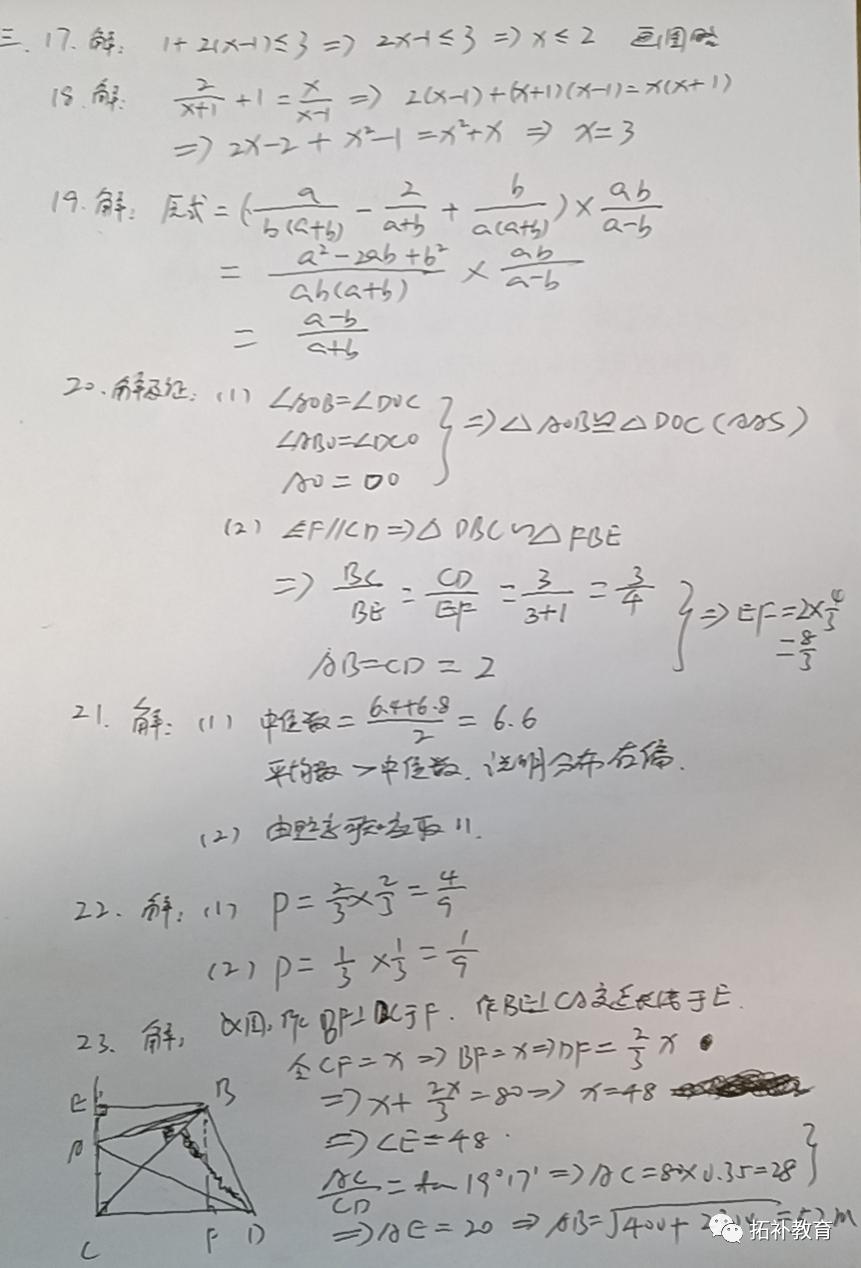 三. 17. 解: 1+2(x-1)≤3 => 2x-1≤3 => x≤2 画图略
18. 解: 2/(x+1) + 1 = x/(x-1) => 2(x-1)+(x+1)(x-1)=x(x+1)
=> 2x-2+x²-1=x²+x => x=3
19. 解: 原式=(a/(b(a+b)) - 2/(a+b) + b/(a(a+b)))×ab/(a-b)
= (a²-2ab+b²)/(ab(a+b)) × ab/(a-b)
= (a-b)/(a+b)
20. 解及证: (1) ∠AOB=∠DOC
∠ABO=∠DCO } => △AOB≌△DOC(AAS)
AO=DO
(2) EF//CD => △DBC∽△FBE
=> BC/BE = CD/EF = 3/(3+1) = 3/4 } => EF=2×4/3
=8/3
AB=CD=2
21. 解: (1) 中位数=(6.4+6.8)/2=6.6
平均数>中位数, 说明分布右偏.
(2) 由 取11.
22. 解: (1) P=2/3×2/3=4/9
(2) P=1/3×1/3=1/9
23. 解: 如图, 作BF⊥DC于F. 作BE⊥CA交延长线于E.
令CF=x => BF=x => DF=2/3 x
=> x+2x/3=80 => x=48
=> CE=48
AC/CD=tan19°17' => AC=80×0.35=28 }
=> AE=20 => AB=√400+ =52m
E B
A
C F D
拓补教育